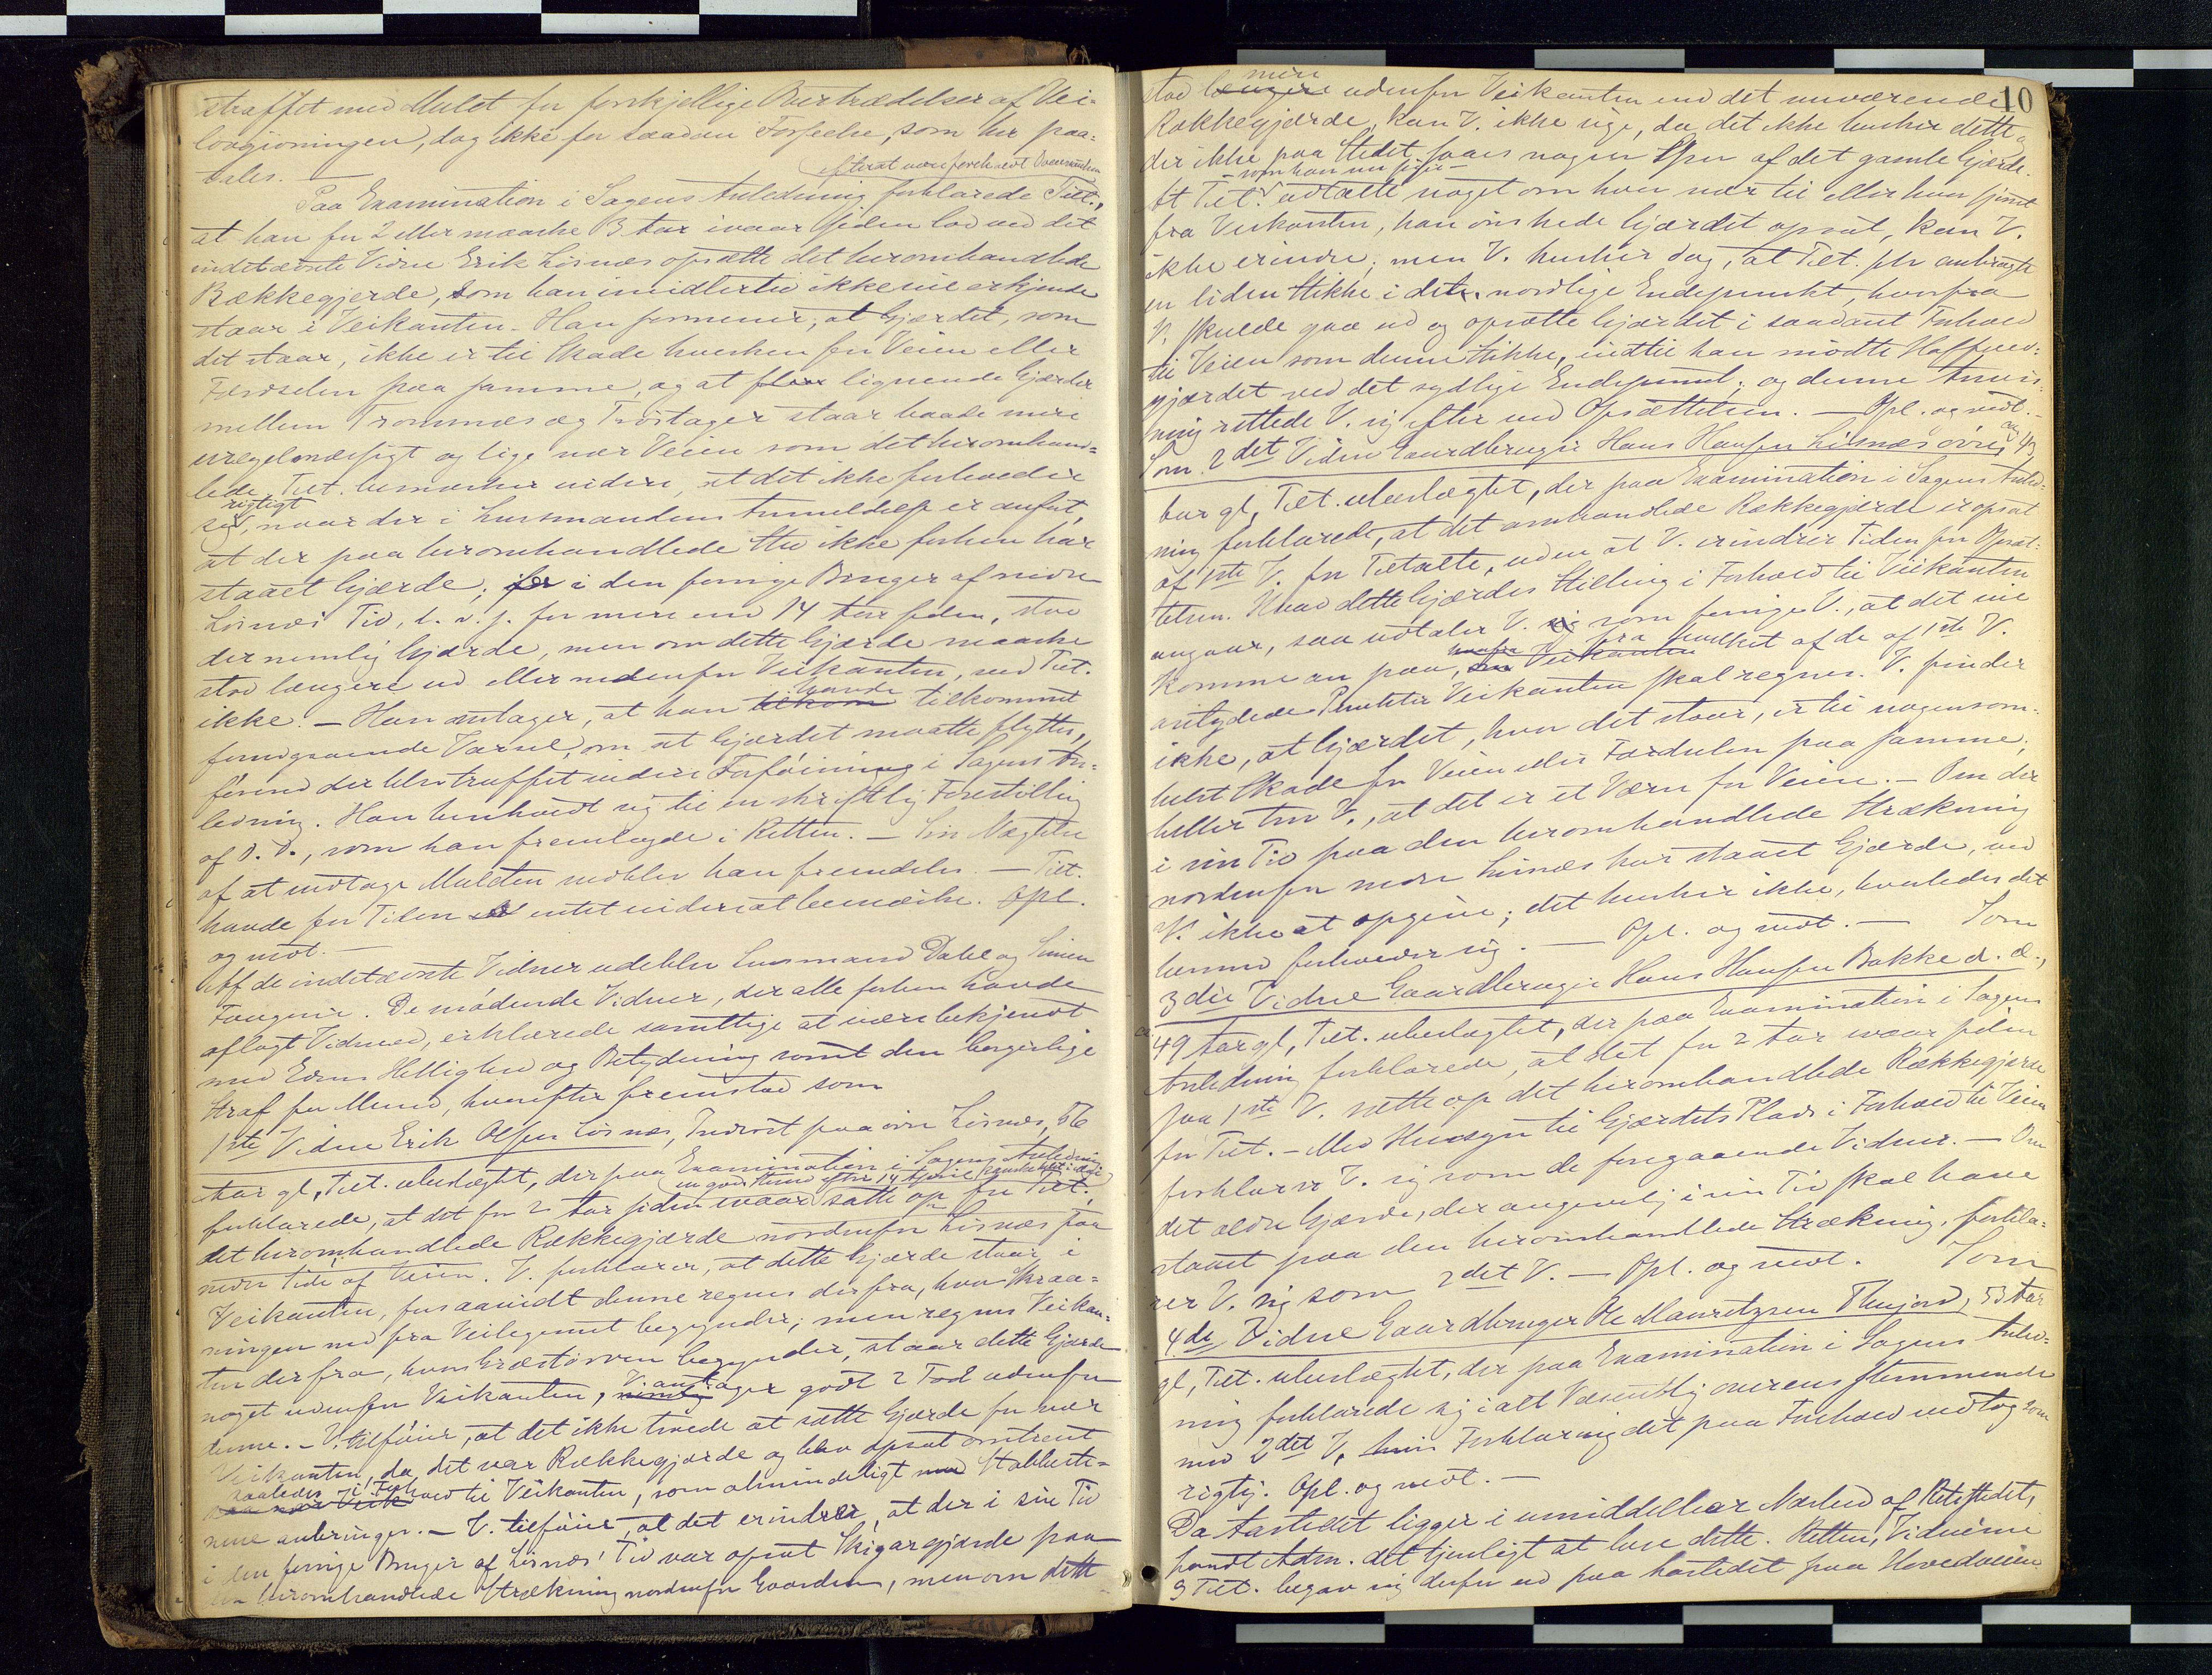 straffet med Mulct for forskjellige Overtrædelser af Vei-
lovgivningen, dog ikke for saadan Forseelse, som her paa-
tales. —
efterat være foreholdt Overværelsen
Paa Examination i Sagens Anledning forklarede Tilt.,
at han for 2 eller maaske 3 Aar ivaar siden lod ved det
indstævnte Vidne Erik Lisnæs opsætte det heromhandlede
Rækkegjerde, som han imidlertid ikke vil erkjende
staar i Veikanten. Han formener, at Gjærdet, som
det staar, ikke er til Skade hverken for Veien eller
Færdselen paa samme, og at flere lignende Gjærder
mellem Trommnæs og Tröstager staar baade mere
uregelmæssigt og lige nær Veien som det heromhand-
lede. Tilt. bemærker videre, at det ikke forholder
sig rigtigt, naar der i Lensmandens Anmeldelse er anført,
at der paa heromhandlede Sted ikke forhen har
staaet Gjærde; før i den forrige Bruger af nedre
Lisnæs' Tid, d. v. s. for mere end 14 Aar siden, stod
der nemlig Gjærde, men om dette Gjærde maaske
stod længere ud eller nedenfor Veikanten, ved Tilt.
ikke. — Han antager, at han tilkom havde tilkommet
foregaaende Varsel, om at Gjærdet maatte flyttes,
förend der blev truffet videre Forföining i Sagens An-
ledning. Han henholdt sig til en skriftlig Forestilling
af D. D., som han fremlagde i Retten. — Sin Nægtelse
af at vedtage Mulcten vedblev han fremdeles. — Tilt.
havde for Tiden intet videre at bemærke. Opl.
og vedt. —
Af de indstævnte Vidner udeblev Lensmand Dahl og Simen
Faugerie. De mödende Vidner, der alle forhen havde
aflagt Vidneed, erklærede samtlige at være bekjendt
med Edens Hellighed og Betydning samt den borgerlige
Straf for Mened, hvorefter fremstod som
1ste Vidne Erik Olssen Lisnæs, Inderst paa övre Lisnæs, 56
Aar gl., Tilt. ubeslægtet, der paa Examination i Sagens Anledning
en god Stund efter 14 April
forklarede, at det for 2 Aar siden ivaar satte op for Tilt.
det heromhandlede Rækkegjærde nordenfor Lisnæs paa
nedre Side af Veien. V. forklarer, at dette Gjærde staar i
Veikanten, forsaavidt denne regnes derfra, hvor Skraa-
ningen ned fra Veilegemet begynder; men regnes Veikan-
ten derfra, hvor Græstorven begynder, staar dette Gjærde
noget udenfor Veikanten, nemlig V. antager godt 2 Fod udenfor
denne. — V. tilföier, at det ikke troede at sætte Gjærde for nær
Veikanten, da det var Rækkegjærde og blev opsat omtrent
saa nær Veik saaledes i Forhold til Veikanten, som almindeligt med Stabbeste-
nene anbringes. — V. tilföier, at det erindrer, at der i sin Tid
i den forrige Bruger af Lisnæs' Tid var opsat Skigargjærde paa
den heromhandlede Strækning nordenfor Gaarden, men om dette
10
stod længere mere udenfor Veikanten end det nuværende
Rækkegjærde, kan V. ikke sige, da det ikke husker dette og
der ikke paa Stedet saaes nogen Spor af det gamle Gjærde.
— som han nu siger —
At Tilt. udtalte noget om hvor nær til eller hvor fjernt
fra Veikanten, han önskede Gjærdet opsat, kan V.
ikke erindre; men V. husker dog, at Tilt. selv anbragte
en liden Stikke i dets nordlige Endepunkt, hvorfra
V. skulde gaa ud og opsætte Gjærdet i saadant Forhold
til Veien som denne Stikke, indtil han mödte Hoffned-
gjærdet ved det sydlige Endepunkt; og denne Anvis-
ning rettede V. sig efter ved Opsættelsen. — Opl. og vedt. —
Som 2det Vidne Gaardbruger Hans Hansen Lisnæs övre, 43
Aar gl., Tilt. ubeslægtet, der paa Examination i Sagens Anled-
ning forklarede, at det omhandlede Rækkegjærde er opsat
af 1ste V. for Tiltalte, uden at V. erindrer Tiden for Opsæt-
telsen. Hvad dette Gjærdes Stilling i Forhold til Veikanten
angaar, saa udtaler V. sig som forrige V., at det vil
komme an paa, om Veikanten hvorfra hvilket af de af 1ste V.
antydede Punkter Veikanten skal regnes. V. finder
ikke, at Gjærdet, hvor det staar, er til nogensom-
helst Skade for Veien eller Færdselen paa samme;
heller tror V., at det er et Værn for Veien. — Om der
i sin Tid paa den heromhandlede Strækning
nordenfor nedre Lisnæs har staaet Gjærde, ved
V. ikke at opgive; det husker ikke, hvorledes det
hermed forholder sig. — Opl. og vedt. — Som
3die Vidne Gaardbruger Hans Hansen Bakke d. æ.,
49 Aar gl., Tilt. ubeslægtet, der paa Examination i Sagens
Anledning forklarede, at det for 2 Aar ivaar siden
saa 1ste V. sætte op det heromhandlede Rækkegjærde
for Tilt. — Med Hensyn til Gjærdets Plads i Forhold til Veien
forklarer V. sig som de foregaaende Vidner. — Om
det ældre Gjærde, der angivelig i sin Tid skal have
staaet paa den heromhandlede Strækning, forkla-
rer V. sig som 2det V. — Opl. og vedt. Som
4de Vidne Gaardbruger Ole Mauritzsen Thujord, 53 Aar
gl., Tilt. ubeslægtet, der paa Examination i Sagens Anled-
ning forklarede sig i alt Væsentlig overensstemmende
med 2det V., hvis Forklaring det paa Forhold vedtog som
rigtig. Opl. og vedt. —
Da Aastedet ligger i umiddelbar Nærhed af Retsstedet,
fandt Adm. det tjenligt at bese dette. Retten, Vidnerne
og Tilt. begav sig derfor ud paa Aastedet paa Hovedveien